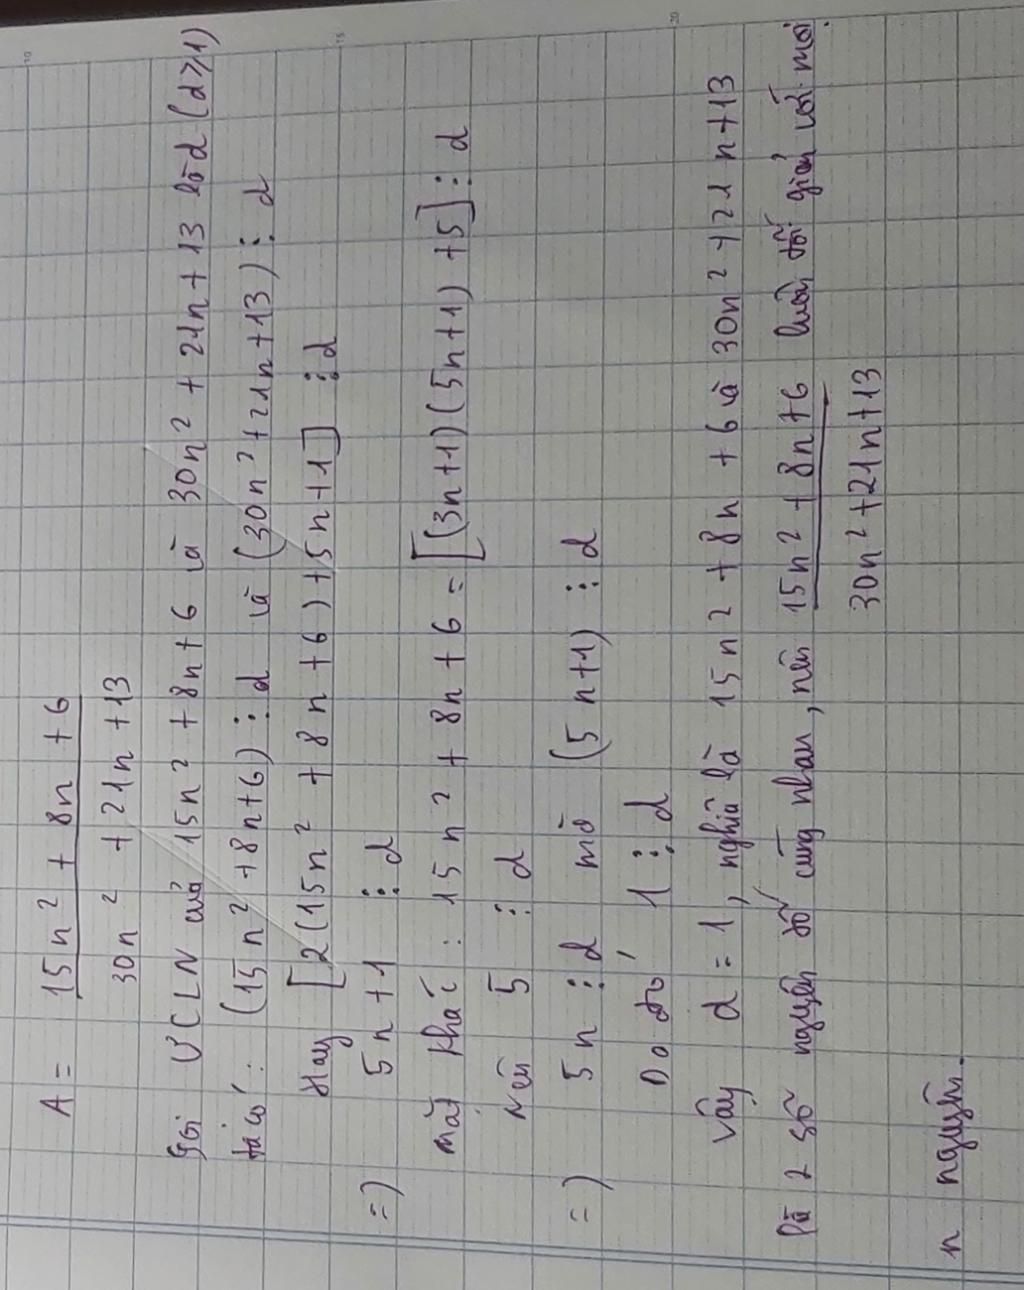 A = 15n² + 8n + 6
30n² + 21n + 13
Gọi ƯCLN của 15n² + 8n + 6 và 30n² + 21n + 13 là d (d ≥ 1)
ta có : (15n² + 8n + 6) ⋮ d và (30n² + 21n + 13) ⋮ d
Hay [2(15n² + 8n + 6) + 5n + 1] ⋮ d
=) 5n + 1 ⋮ d
mặt khác : 15n² + 8n + 6 = [(3n+1)(5n+1) + 5] ⋮ d
Nên 5 ⋮ d
=) 5n ⋮ d mà (5n+1) ⋮ d
Do đó 1 ⋮ d
Vậy d = 1, nghĩa là 15n² + 8n + 6 và 30n² + 21n + 13
là 2 số nguyên tố cùng nhau, nên 15n² + 8n + 6 luôn tối giản với mọi
30n² + 21n + 13
n nguyên.